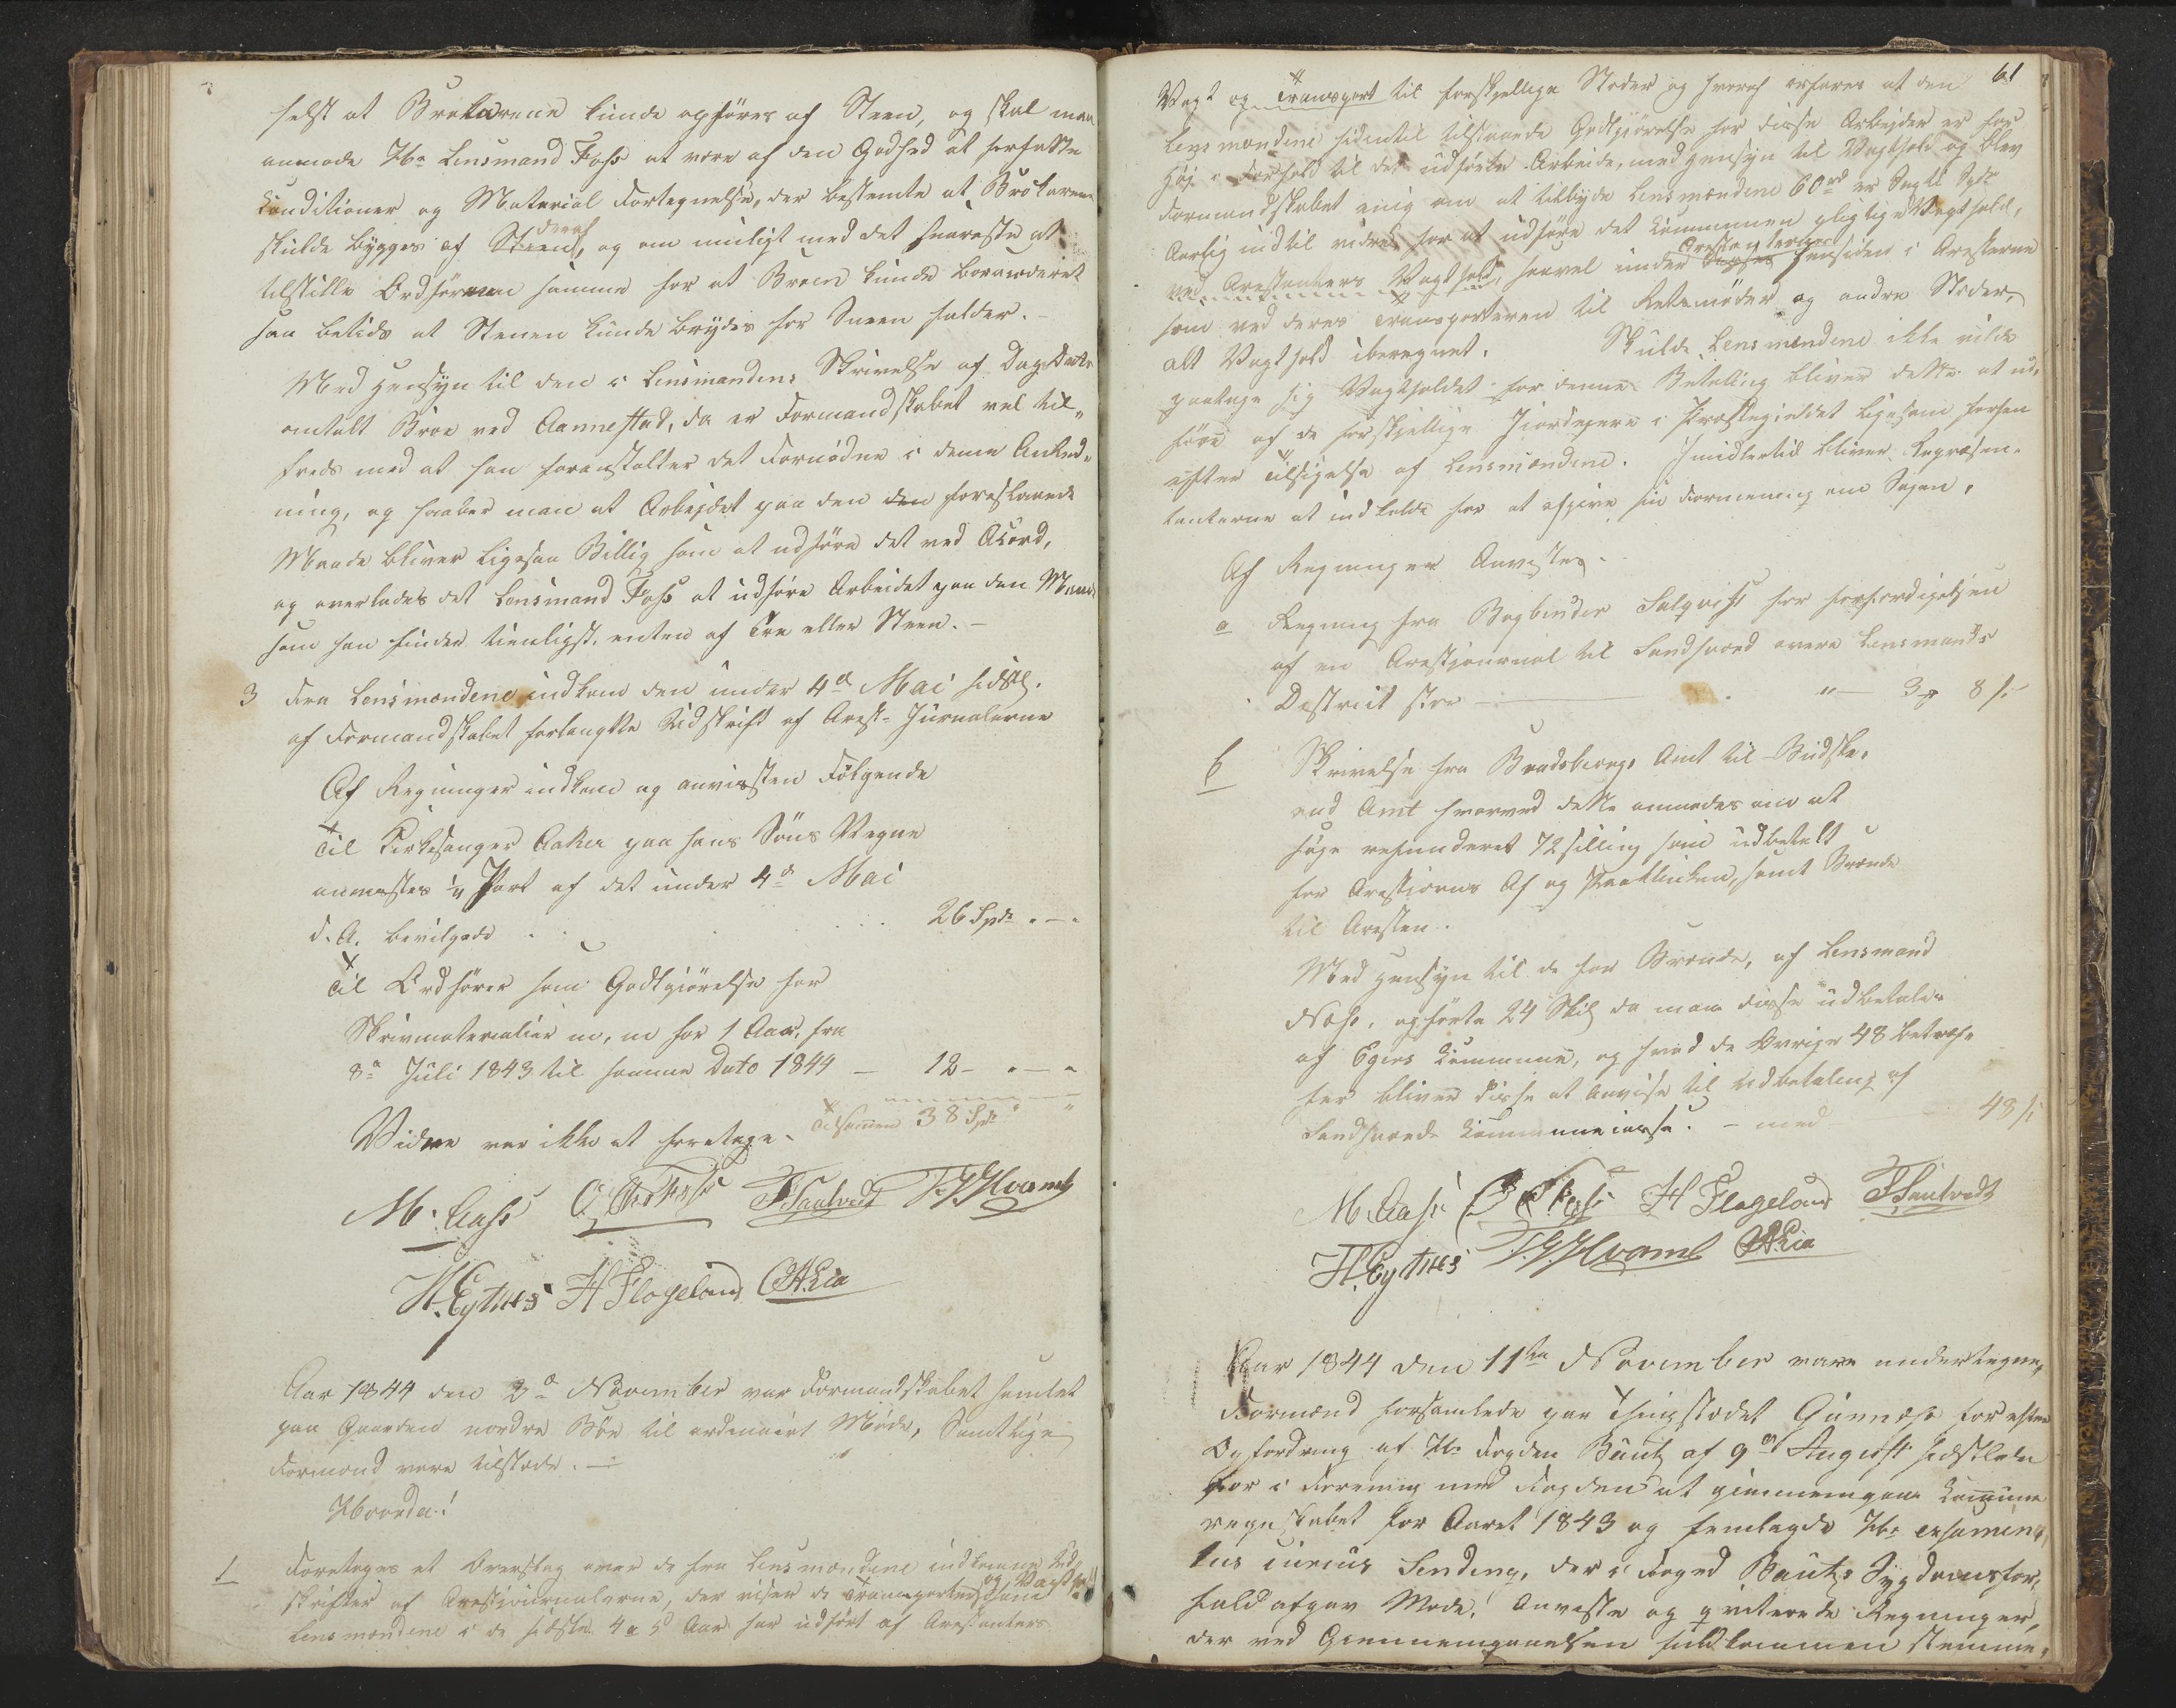 helst at Brokarene kunde opføres af Steen, og skal man
anmode Hr. Lensmand Foss at være af den Godhed at forfatte
Conditioner og Material Fortegnelse, der bestemte at Brokarene
skulde bygges af Steen, deraf og om muligt med det snareste at
tilstille Ordføreren samme for at Broen kunde borauderet
saa betids at Stenen kunde brydes før Sneen falder. -
Med Hensyn til den i Lensmandens Skrivelse af Dags Dato
omtalt Broe ved Aannestad, da er Formandskabet vel til-
freds med at han foranstalter det Fornødne i denne Anled-
ning, og haaber man at Arbejdet paa den den foreslaaede
Maade bliver ligesaa Billig som at udføre det ved Acord,
og overlades det Lensmand Foss at udføre Arbeidet paa den Maade
som han finder tienligst, enten af Træ eller Steen. -
3 Fra Lensmændene indkom den under 4de Mai sidstl.
af Formandskabet forlangtte Udskrift af Arest-Jurnalerne
Af Regninger indkom og anvistes Følgende
Til Kirkesanger Aaker paa hans Søns Vegne
anvistes 1/4 Part af det under 4de Mai
d. A. bevilgede . . 26 Spd. " - "
Til Ordfører som Godtgiørelse for
Skrivmaterialier m, m for 1 Aar, fra
8de Juli 1843 til samme Dato 1844 - 12 - " - "
Tilsamen 38 Spd " "
Videre var ikke at foretage.
M. Aass O Foss F. Saulvedt T. G. Hvamb
H. Eytnes H Flageland O H Lia
Aar 1844 den 2de November var Formandskabet samlet
paa Gaarden nordre Bøe til ordinairt Møde, Samtlige
Formænd vare tilstæde. -
Hvorda!
1 Foretoges et Overslag over de fra Lensmændene indkomne Ud-
skrifter af Arestjournalerne, der viser de Transporter og Vagthold som
Lensmændene i de sidste 4 a 5 Aar har udført af Arestanters
61
Vagt og Transport til forskjellige Steder og hvoraf erfares at den
Lensmændene sidentil tilstaaede Godtgiørelse for disse Arbejder er for
Høj i Forhold til det udførte Arbeide, med Hensyn til Vagthold og blev
Formandskabet enig om at tilbyde Lensmændene 60 er Sexti Spd
Aarlig indtil videre for at udføre det Communen pligtige Vagthold,
ved Arestanters Vagthold, saavel under Arestanternes hensiden i Aresterne
som ved deres Transporteren til Retsmøder og andre Steder,
alt Vagthold iberegnet. Skulde Lensmændene ikke vilde
paatage sig Vagtholdet for denne Betaling bliver dette at ud-
føre af de forskjellige Jordejere i Præstegieldet ligesom forhen
efter Tilsigelse af Lensmændene. Imidlertid bliver Repræsen-
tanterne at indkalde for at afgive sin Formening om Sagen.
Af Regninger Anvistes.
a Regning fra Bogbinder Salqvist for forfærdigelsen
af en Arestjournal til Sandsværd øvre Lensmands
District stor - " - 3 # 8 s.
6 Skrivelse fra Bradsbergs Amt til Budske-
rud Amt hvorved dette anmodes om at
søge refunderet 72 silling som udbetalt
for Arestjerns Af og Paaklinken, samt Brænde
til Aresten.
Med Hensyn til de for Brænde, af Lensmand
Næss, opførte 24 Skil da maa disse udbetales
af Egers Commune, og hvad de Øvrige 48 betræf-
fer bliver disse at anvise til Udbetaling af
Sandsværds Communecasse. - med 48 s
M. Aass O Foss H Flageland F Saulvedt
H. Eytnes T. G. Hvamb O H Lia
Aar 1844 den 11te November vare undertegne-
Formænd forsamlede paa Thingstædet Gunnæs for efter
Opfordring af Hr. Fogden Bautz af 9de August sidstleden
for i Forening med Fogden at giennemgaae Commune
regnskabet for Aaret 1843 og fremlagde Hr. examina-
tus iurius Sending, der i Foged Bautz Sygdomsfor-
fald afgav Møde, Anviste og qviterede Regninger,
der ved Giennemgaaelsen fuldkommen stemme-